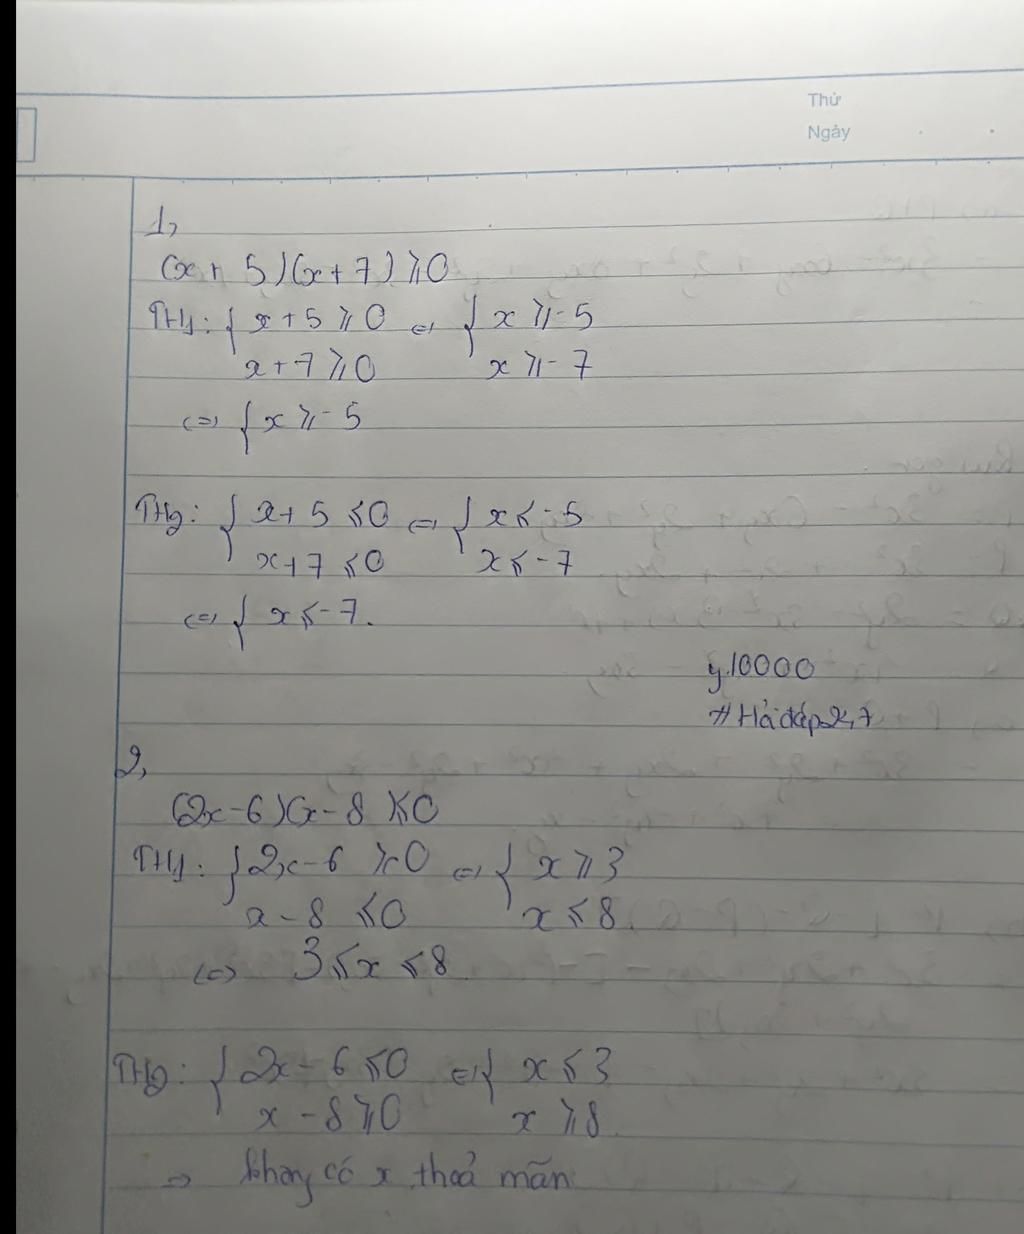 Thứ
Ngày
1,
(x + 5)(x + 7) ⩾ 0
TH1: { x + 5 ⩾ 0 ⇔ { x ⩾ -5
x + 7 ⩾ 0 x ⩾ -7
⇔ { x ⩾ -5
TH2: { x + 5 ⩽ 0 ⇔ { x ⩽ -5
x + 7 ⩽ 0 x ⩽ -7
⇔ { x ⩽ -7.
y.10000
#Hỏiđáp247
2,
(2x - 6)(x - 8) ⩽ 0
TH1: { 2x - 6 ⩾ 0 ⇔ { x ⩾ 3
x - 8 ⩽ 0 x ⩽ 8.
⇔ 3 ⩽ x ⩽ 8
TH2: { 2x - 6 ⩽ 0 ⇔ { x ⩽ 3
x - 8 ⩾ 0 x ⩾ 8
⇒ không có x thoả mãn